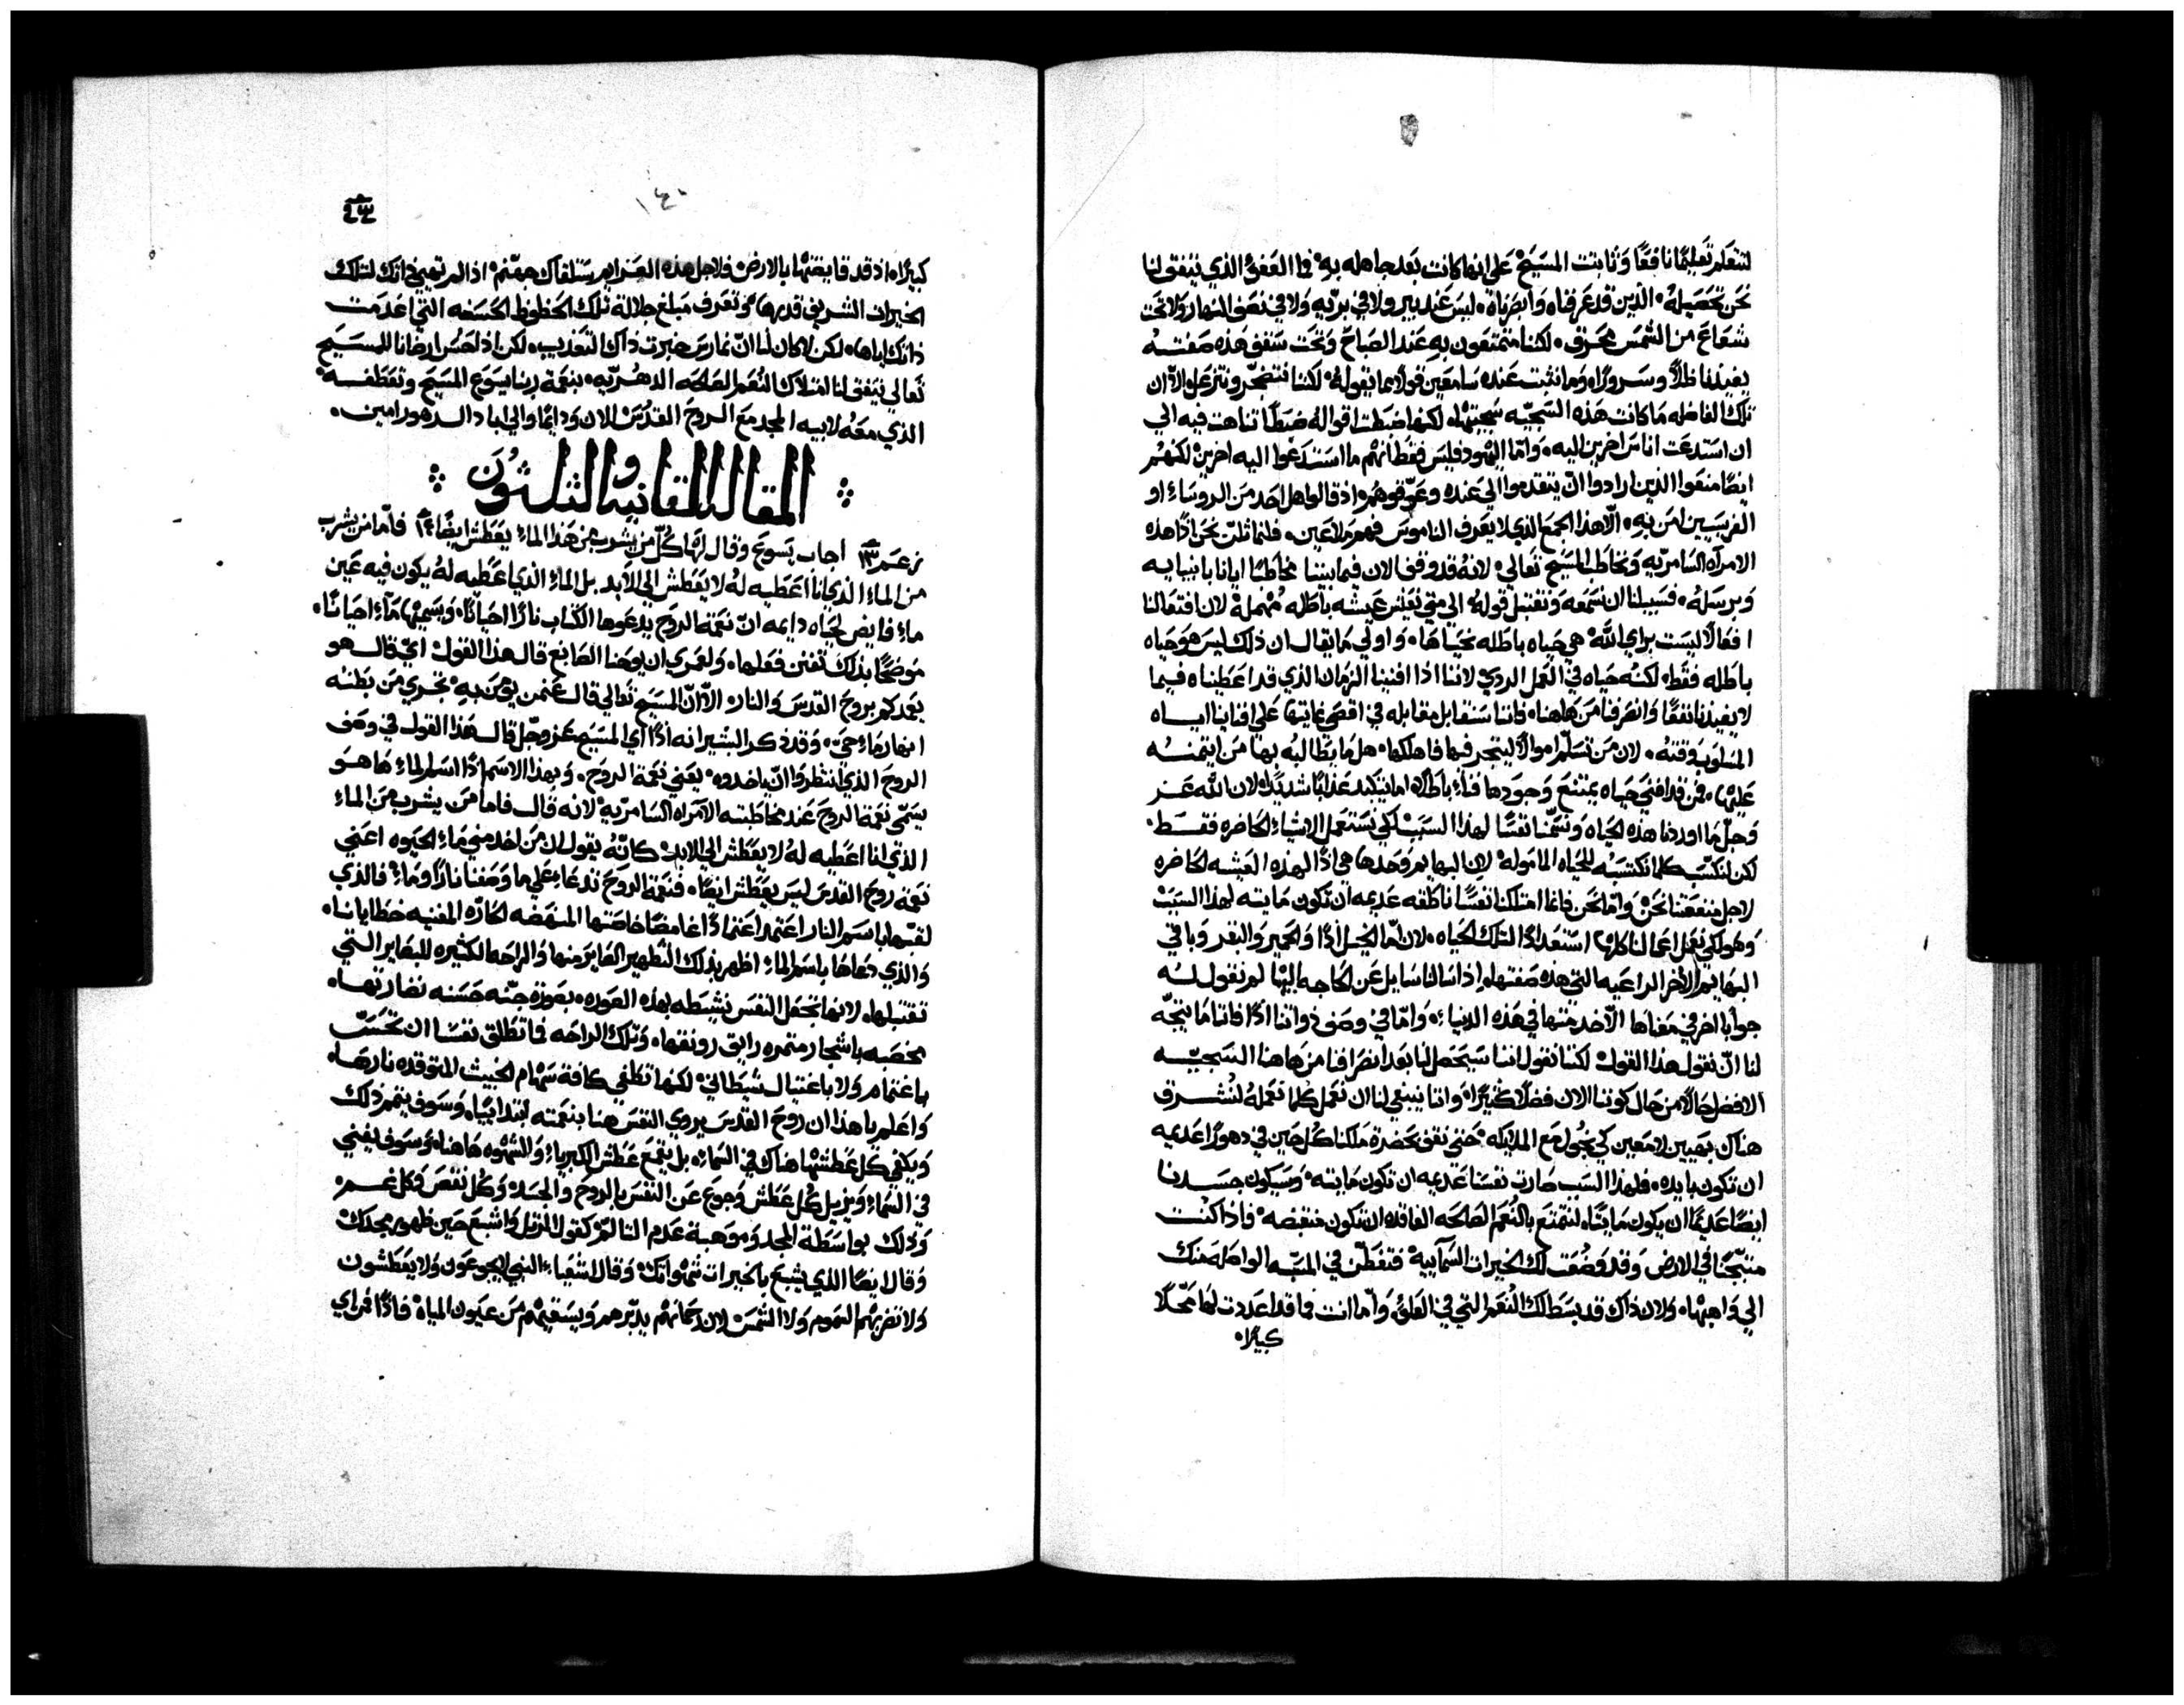 لتتعلم تعليمًا نافعًا وثابتت المسيح على انها كانت بعد جاهله به في العمق الذي يتفق لنا
نحن تحصيله الذين قد عرفناه وابصرناه ليس عند بير ولا في بريه ولا في نصف النهار ولا تحت
شعاع من الشمس محرق لكننا متمتعون به عند الصباح وتحت سقف هذه صفته
يفيدنا ظلاً وسرورًا وما نثبت عنده سامعين قولاً مما يقوله لكننا نتضجر ونتزعل الا ان
تلك الفاضله ما كانت هذه السجيه سجيتها لكنها ضبطت اقواله ضبطًا تناهت فيه الي
ان استدعت اناس اخرين اليه واما اليهود فليس فقط انهم ما استدعوا اليه اخرين لكنهم
ايضًا منعوا الذين ارادوا ان يتقدموا الى عنده وعوقوهم اذ قالوا هل احد من الروساء او
الفريسيين امن به الا هذا الجمع الذي لا يعرف الناموس فهم ملاعين فلنماثلن نحن اذًا هذه
الامراه السامريه ونخاطب المسيح تعالي لانه قد وقف الان فيما بيننا مخاطبًا ايانا بانبيايه
وبرسله فسبيلنا ان نسمعه ونقتبل قوله الى متى نعيش عيشه باطله مهملة لان افتعالنا
افعالاً ليست براي الله هي حياه باطله نحياها واولي ما يقال ان ذلك ليس هو حياه
باطله فقط لكنه حياه في العمل الردي لاننا اذا افنينا الزمان الذي قد اعطيناه فيما
لا يفيدنا نفعًا وانصرفنا من هاهنا فاننا سنقابل مقابله في اقصي غايتها على افناينا اياه
المسلوب وقته لان من تسلم اموالاً ليتجر فيها فاهلكها هل ما يطالبه بها من ايتمنه
عليها فمن قد افني حياه يمتنع وجودها فناء باطلا اما يتكبد عذابًا شديدًا لان الله عز
وجل ما اوردنا هذه الحياه ونسمنا نفسًا لهذا السبب لكي نستعمل الاشياء الحاضره فقط
لكن لنكتسب كلما نكتسبه للحياه المامولة لان البهايم وحدها هي اذًا لهذه العيشه الحاضره
لاجل منفعتنا نحن واما نحن فانما امتلكنا نفسًا ناطقه عديمه ان تكون مايته لهذا السبب
وهو لكي نعمل اعمالنا كلها استعدادًا لتلك الحياه لان اما الخيل اذًا والحمير والبقر وباقي
البهايم الاخر الراعيه التي هذه صفتها اذا سالنا سايل عن الحاجه اليها لم نقول له
جوابًا اخر في معناها الا خدمتها في هذه الدنيا واما في وصف ذواتنا اذًا فانا ما نتجه
لنا ان نقول هذا القول لكننا نقول اننا سيحصل لنا بعد انصرافنا من هاهنا السجيه
الافضل حالاً من حال كوننا الان فضلاً كثيرًا واننا ينبغي لنا ان نعمل كلما نعمله لنشرق
هناك بهيين لامعين كي نجول مع الملايكه حتى نقف بحضرة ملكنا كل حين في دهورًا عديمه
ان تكون بايده فلهذا السبب صارت نفسنا عديمه ان تكون مايته وسيكون جسدنا
ايضًا عديمًا ان يكون مايتًا لنتمتع بالنعم الصالحه الفاقده ان تكون منقضه واذا كنت
متبججًا في الارض وقد وضعت لك الخيرات السمآييه فتفطن في المسبه الواصله منك
الي واهبها ولان ذاك قد بسط لك النعم التي في العلو واما انت فما قد اعددت لها محلاً
كبيرًا
١٤٠
كبيرًا اذ قد قايضتها بالارض فلاجل هذه العزايم ستلقاك جهنم اذا لم تهيي ذاتك لتلك
الخيرات الشريف قدرها وتعرف مبلغ جلالة تلك الحظوظ الحسنه التي اعدمت
ذاتك اياها لكن لا كان لنا ان نمارس خبرة ذاك التعذيب لكن اذا حسن ارضانا للمسيح
تعالي يتفق لنا امتلاك النعم الصالحه الدهريه بنعمة ربنا يسوع المسيح وتعطفه
الذي معه لابيه المجد مع الروح القدس الان ودايمًا والي اباد الدهور امين
المقالة الثانيه والثلثون
زعم ١٣ اجاب يسوع وقال لها كل من يشرب من هذا الماء يعطش ايضًا ١٤ فاما من يشرب
من الماء الذي انا اعطيه له لا يعطش الى الابد بل الماء الذي اعطيه له يكون فيه عين
ماء فايض لحياه دايمه ان نعمة الروح يدعوها الكتاب نارًا احيانًا ويسميها مآء احيانًا
موضحًا بذلك تفنن فعلها ولعمري ان يوحنا الصابغ قال هذا القول اي قال هو
يعدكم بروح القدس والنار الا ان المسيح تعالي قال عن من يومن به تجري من بطنه
انهار ماء حي وقد ذكر البشير انه اذًا اي المسيح عز وجل قال هذا القول في وصف
الروح الذي انتظروا ان ياخدوه يعني نعمة الروح وبهذا الاسم اذًا اسم الماء ها هو
يسمي نعمة الروح عند مخاطبته الامراه السامريه لانه قال فاما من يشرب من الماء
الذي انا اعطيه له لا يعطش الى الابد كانه يقول ان من اخد مني ماء الحيوه اعني
نعمة روح القدس ليس يعطش ايضًا فنعمة الروح تدعا على ما وصفنا نارًا وماء فالذي
لقبها باسم النار اعتمد اعتمادًا غامضًا خاصتها المنهضه الحاره المفنيه خطايانا
والذي دعاها باسم الماء اظهر بذلك التطهير الصاير منها والراحه الكثيره للبصاير التي
تقتبلها لانها تجعل النفس نشيطه بهذه الصوره بصورة جنه حسنه نضارتها
مخصبه باشجار مثمره رايق رونقها وتلك الراحه فما تطلق نفسنا ان تحس
باغتمام ولا باغتيال شيطاني لكنها تطفي كافة سهام الخبيث المتوقده نارها
واعلم يا هذا ان روح القدس يروي النفس هنا بنعمته ابتداييًا وسوف يتمم ذلك
ويكفي كل عطشتها هناك في السماء بل يقمع عطش الكبرياء والشهوه هاهنا وسوف يفني
في السماء ويزيل كل عطش وجوع عن النفس بالروح والجسد وكل نقص وكل غم
وذلك بواسطة المجد وموهبة عدم التالم كقول المرتل واشبع حين ظهور مجدك
وقال ايضًا الذي يشبع بالخيرات شهواتك وقال اشعياء النبي لا يجوعون ولا يعطشون
ولا تضربهم السموم ولا الشمس لان رحمانهم يدبرهم ويسقيهم من عيون المياه فاذًا فمن اي